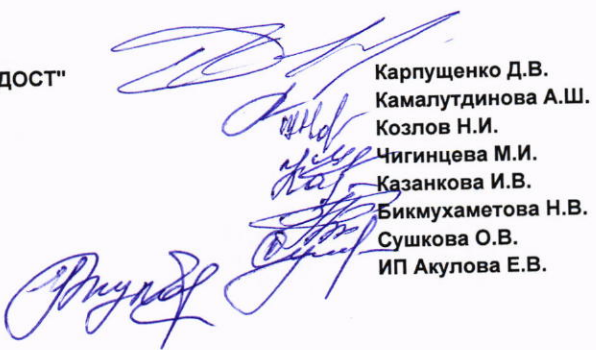 ДОСТ"
Карпущенко Д.В.
Камалутдинова А.Ш.
Козлов Н.И.
Чигинцева М.И.
Казанкова И.В.
Бикмухаметова Н.В.
Сушкова О.В.
ИП Акулова Е.В.